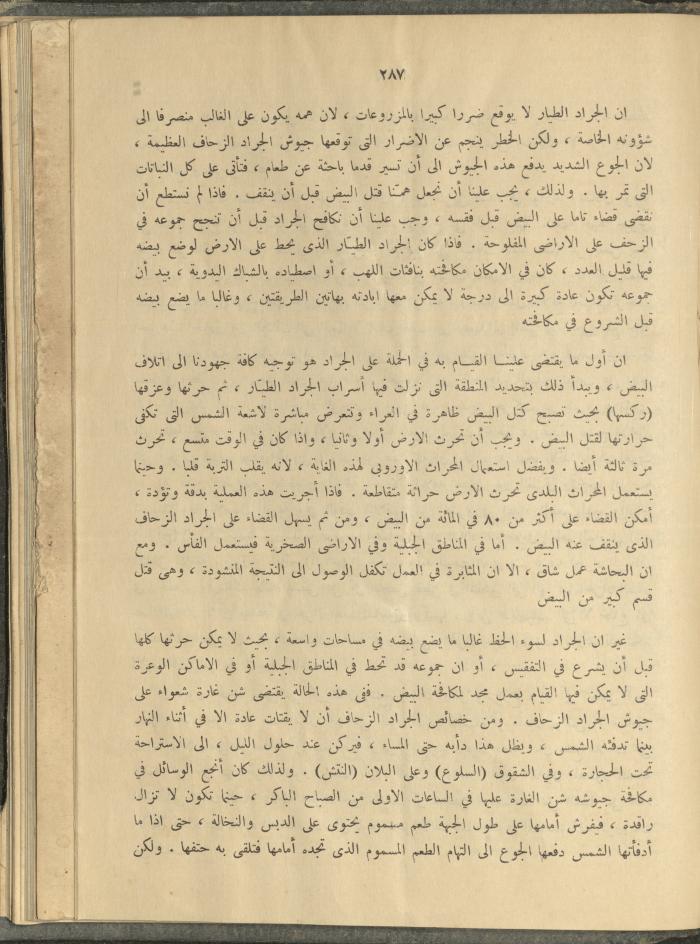 ٢٨٧
ان الجراد الطيار لا يوقع ضررا كبيرا بالمزروعات ، لان همه يكون على الغالب منصرفا الى
شؤونه الخاصة ، ولكن الخطر ينجم عن الاضرار التى توقعها جيوش الجراد الزحاف العظيمة ،
لان الجوع الشديد يدفع هذه الجيوش الى أن تسير قدما باحثة عن طعام ، فتأتى على كل النباتات
التى تمر بها . ولذلك ، يجب علينا أن نجعل همتنا قتل البيض قبل أن ينقف . فاذا لم نستطع أن
نقضى قضاء تاما على البيض قبل فقسه ، وجب علينا أن نكافح الجراد قبل أن تنجح جموعه في
الزحف على الاراضى المفلوحة . فاذا كان الجراد الطيّار الذى يحط على الارض لوضع بيضه
فيها قليل العدد ، كان في الامكان مكافحته بنافثات اللهب ، أو اصطياده بالشباك اليدوية ، بيد أن
جموعه تكون عادة كبيرة الى درجة لا يمكن معها ابادته بهاتين الطريقتين ، وغالبا ما يضع بيضه
قبل الشروع في مكافحته
ان أول ما يقتضى علينا القيام به في الحملة على الجراد هو توجيه كافة جهودنا الى اتلاف
البيض ، ويبدأ ذلك بتحديد المنطقة التى نزلت فيها أسراب الجراد الطيّار ، ثم حرثها وعزقها
(ركسها) بحيث تصبح كتل البيض ظاهرة في العراء وتتعرض مباشرة لاشعة الشمس التى تكفى
حرارتها لقتل البيض . ويجب أن تحرث الارض أولا وثانيا ، واذا كان في الوقت متسع ، تحرث
مرة ثالثة أيضا . ويفضل استعمال المحراث الاوروبى لهذه الغاية ، لانه يقلب التربة قلبا . وحينما
يستعمل المحراث البلدى تحرث الارض حراثة متقاطعة . فاذا أجريت هذه العملية بدقة وتؤدة ،
أمكن القضاء على أكثر من ٨٠ في المائة من البيض ، ومن ثم يسهل القضاء على الجراد الزحاف
الذى ينقف عنه البيض . أما في المناطق الجبلية وفي الاراضى الصخرية فيستعمل الفأس . ومع
ان البحاشة عمل شاق ، الا ان المثابرة في العمل تكفل الوصول الى النتيجة المنشودة ، وهى قتل
قسم كبير من البيض
غير ان الجراد لسوء الحظ غالبا ما يضع بيضه في مساحات واسعة ، بحيث لا يمكن حرثها كلها
قبل أن يشرع في التفقيس ، أو ان جموعه قد تحط في المناطق الجبلية أو في الاماكن الوعرة
التى لا يمكن فيها القيام بعمل مجد لمكافحة البيض . ففى هذه الحالة يقتضى شن غارة شعواء على
جيوش الجراد الزحاف . ومن خصائص الجراد الزحاف أن لا يقتات عادة الا في أثناء النهار
بينما تدفئه الشمس ، ويظل هذا دأبه حتى المساء ، فيركن عند حلول الليل ، الى الاستراحة
تحت الحجارة ، وفي الشقوق (السلوع) وعلى البلان (النتش) . ولذلك كان أنجع الوسائل في
مكافحة جيوشه شن الغارة عليها في الساعات الاولى من الصباح الباكر ، حينما تكون لا تزال
راقدة ، فيفرش أمامها على طول الجبهة طعم مسموم يحتوى على الدبس والنخالة ، حتى اذا ما
أدفأتها الشمس دفعها الجوع الى التهام الطعم المسموم الذى تجده أمامها فتلقى به حتفها . ولكن